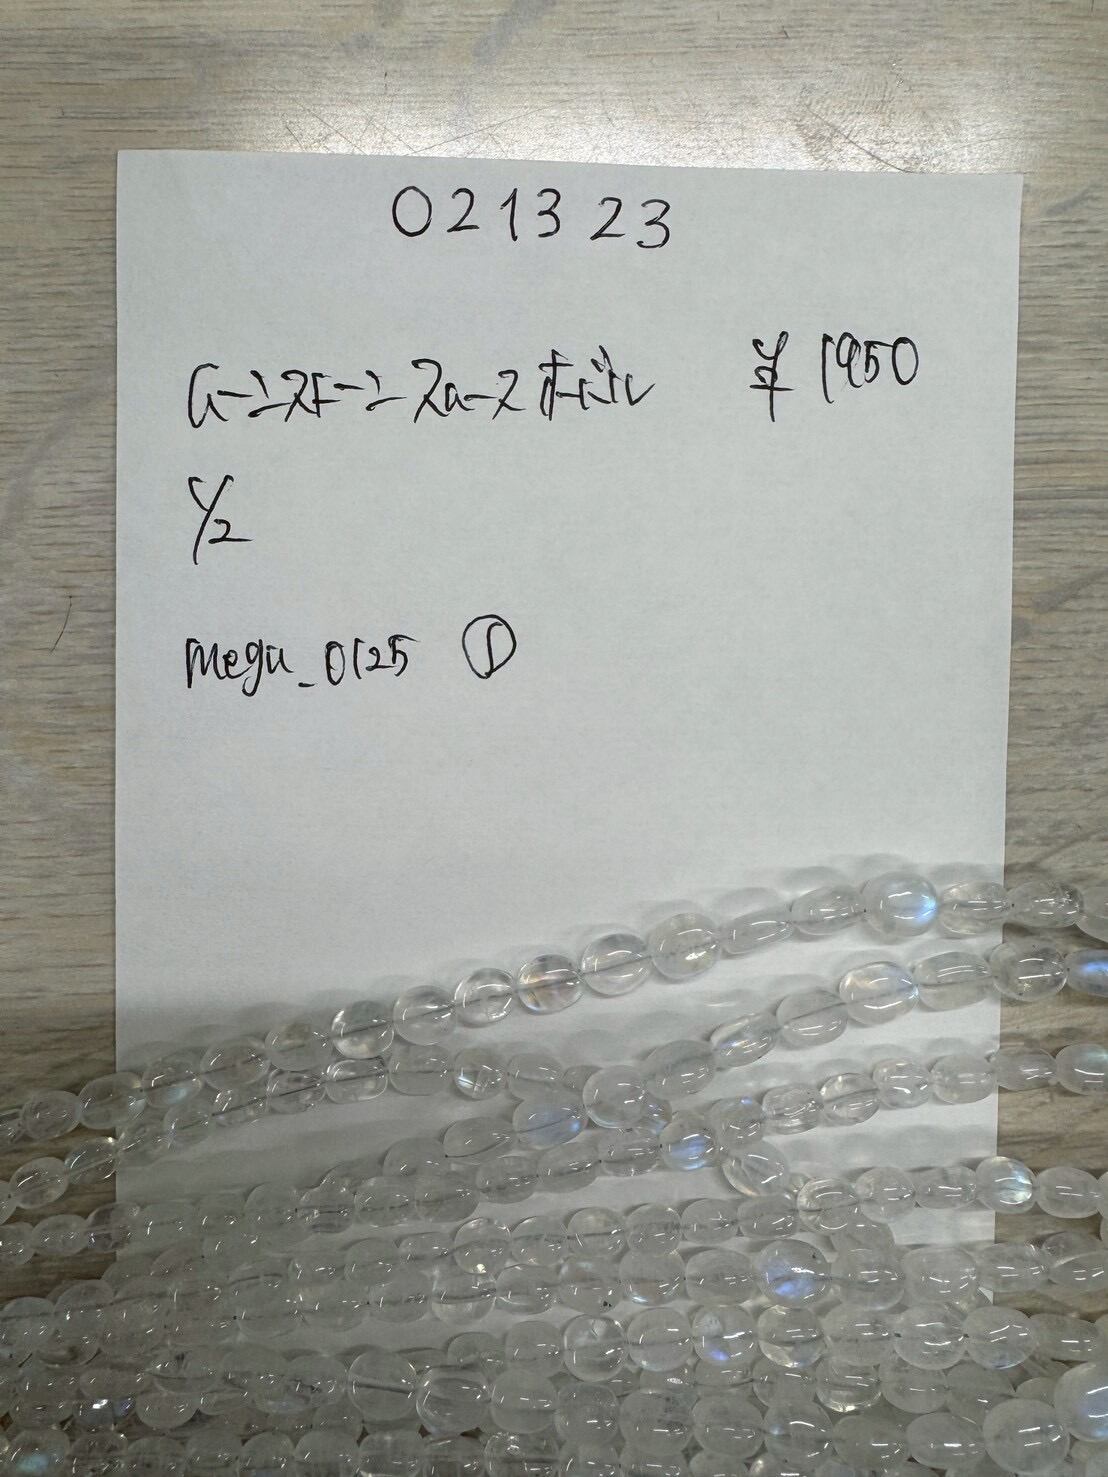 021323
ムーンストーン スムース オーバル ¥1950
1/2
megu_0125 ①